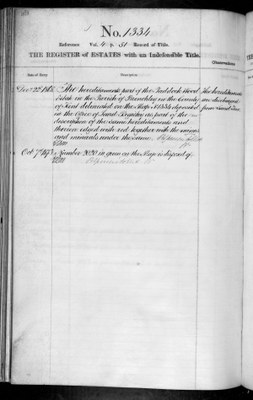 No. 1334
Reference Vol. 4 p. 51 Record of Title.
THE REGISTER OF ESTATES with an Indefeasible Title.
Date of Entry Description Observations
The hereditaments part of the Paddock Wood
Estate in the Parish of Brenchley in the County
of Kent delineated on the Map 1334 deposited
in the Office of Land Registry as part of the
description of the same hereditaments and
thereon edged with red together with the mines
and minerals under the same
The hereditaments
are discharged
from Land
Oct 7th 1873 Number in green on the Map is disposed of